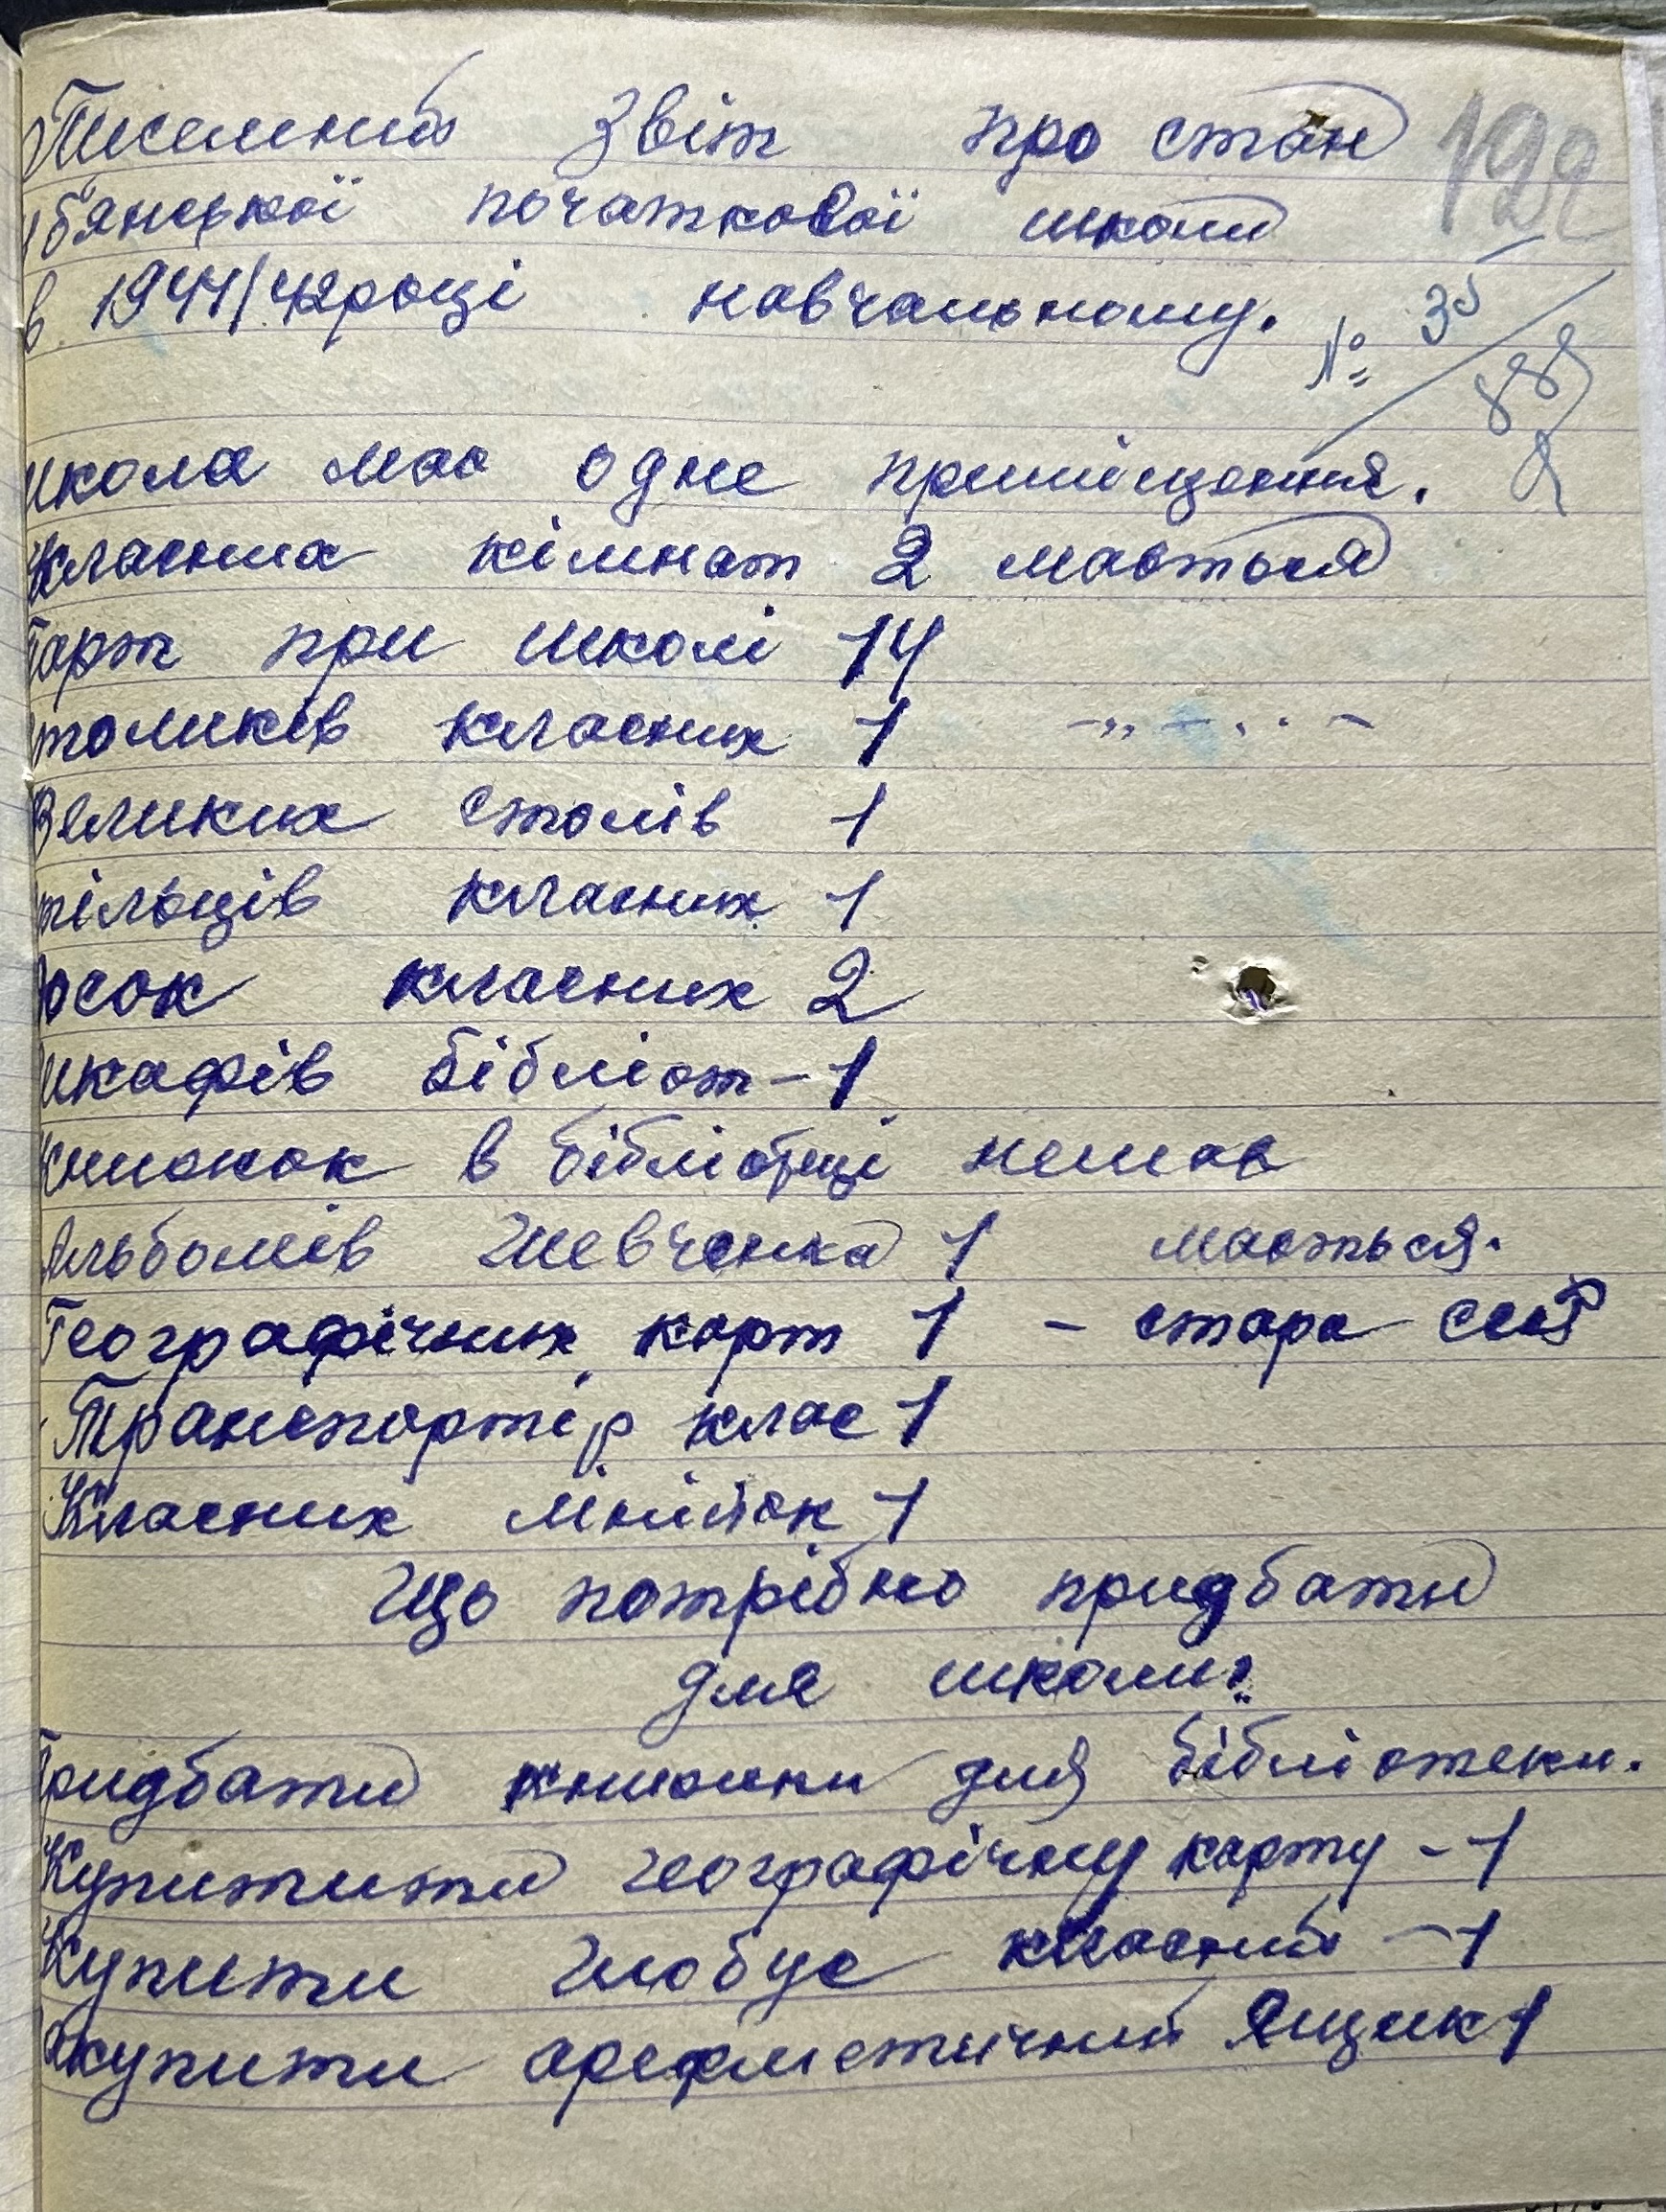 Писемний звіт про стан 122
б'янської початкової школи
в 1941/42 році навчальному.
№ 35/88
школа має одне приміщення.
Класних кімнат 2 маються
Парт при школі 14
столиків класних 1 -„-
Великих столів 1
стільців класних 1
Досок класних 2
шкафів бібліот-1
книжок в бібліотеці немає
Альбомів Шевченка 1 мається.
Географічних карт 1 - стара
Транспортір клас 1
Класних лінійок 1
Що потрібно придбати
для школи?
Придбати книжки для бібліотеки.
Купитити географічну карту - 1
Купити глобус класний - 1
Закупити арефметичний ящик 1